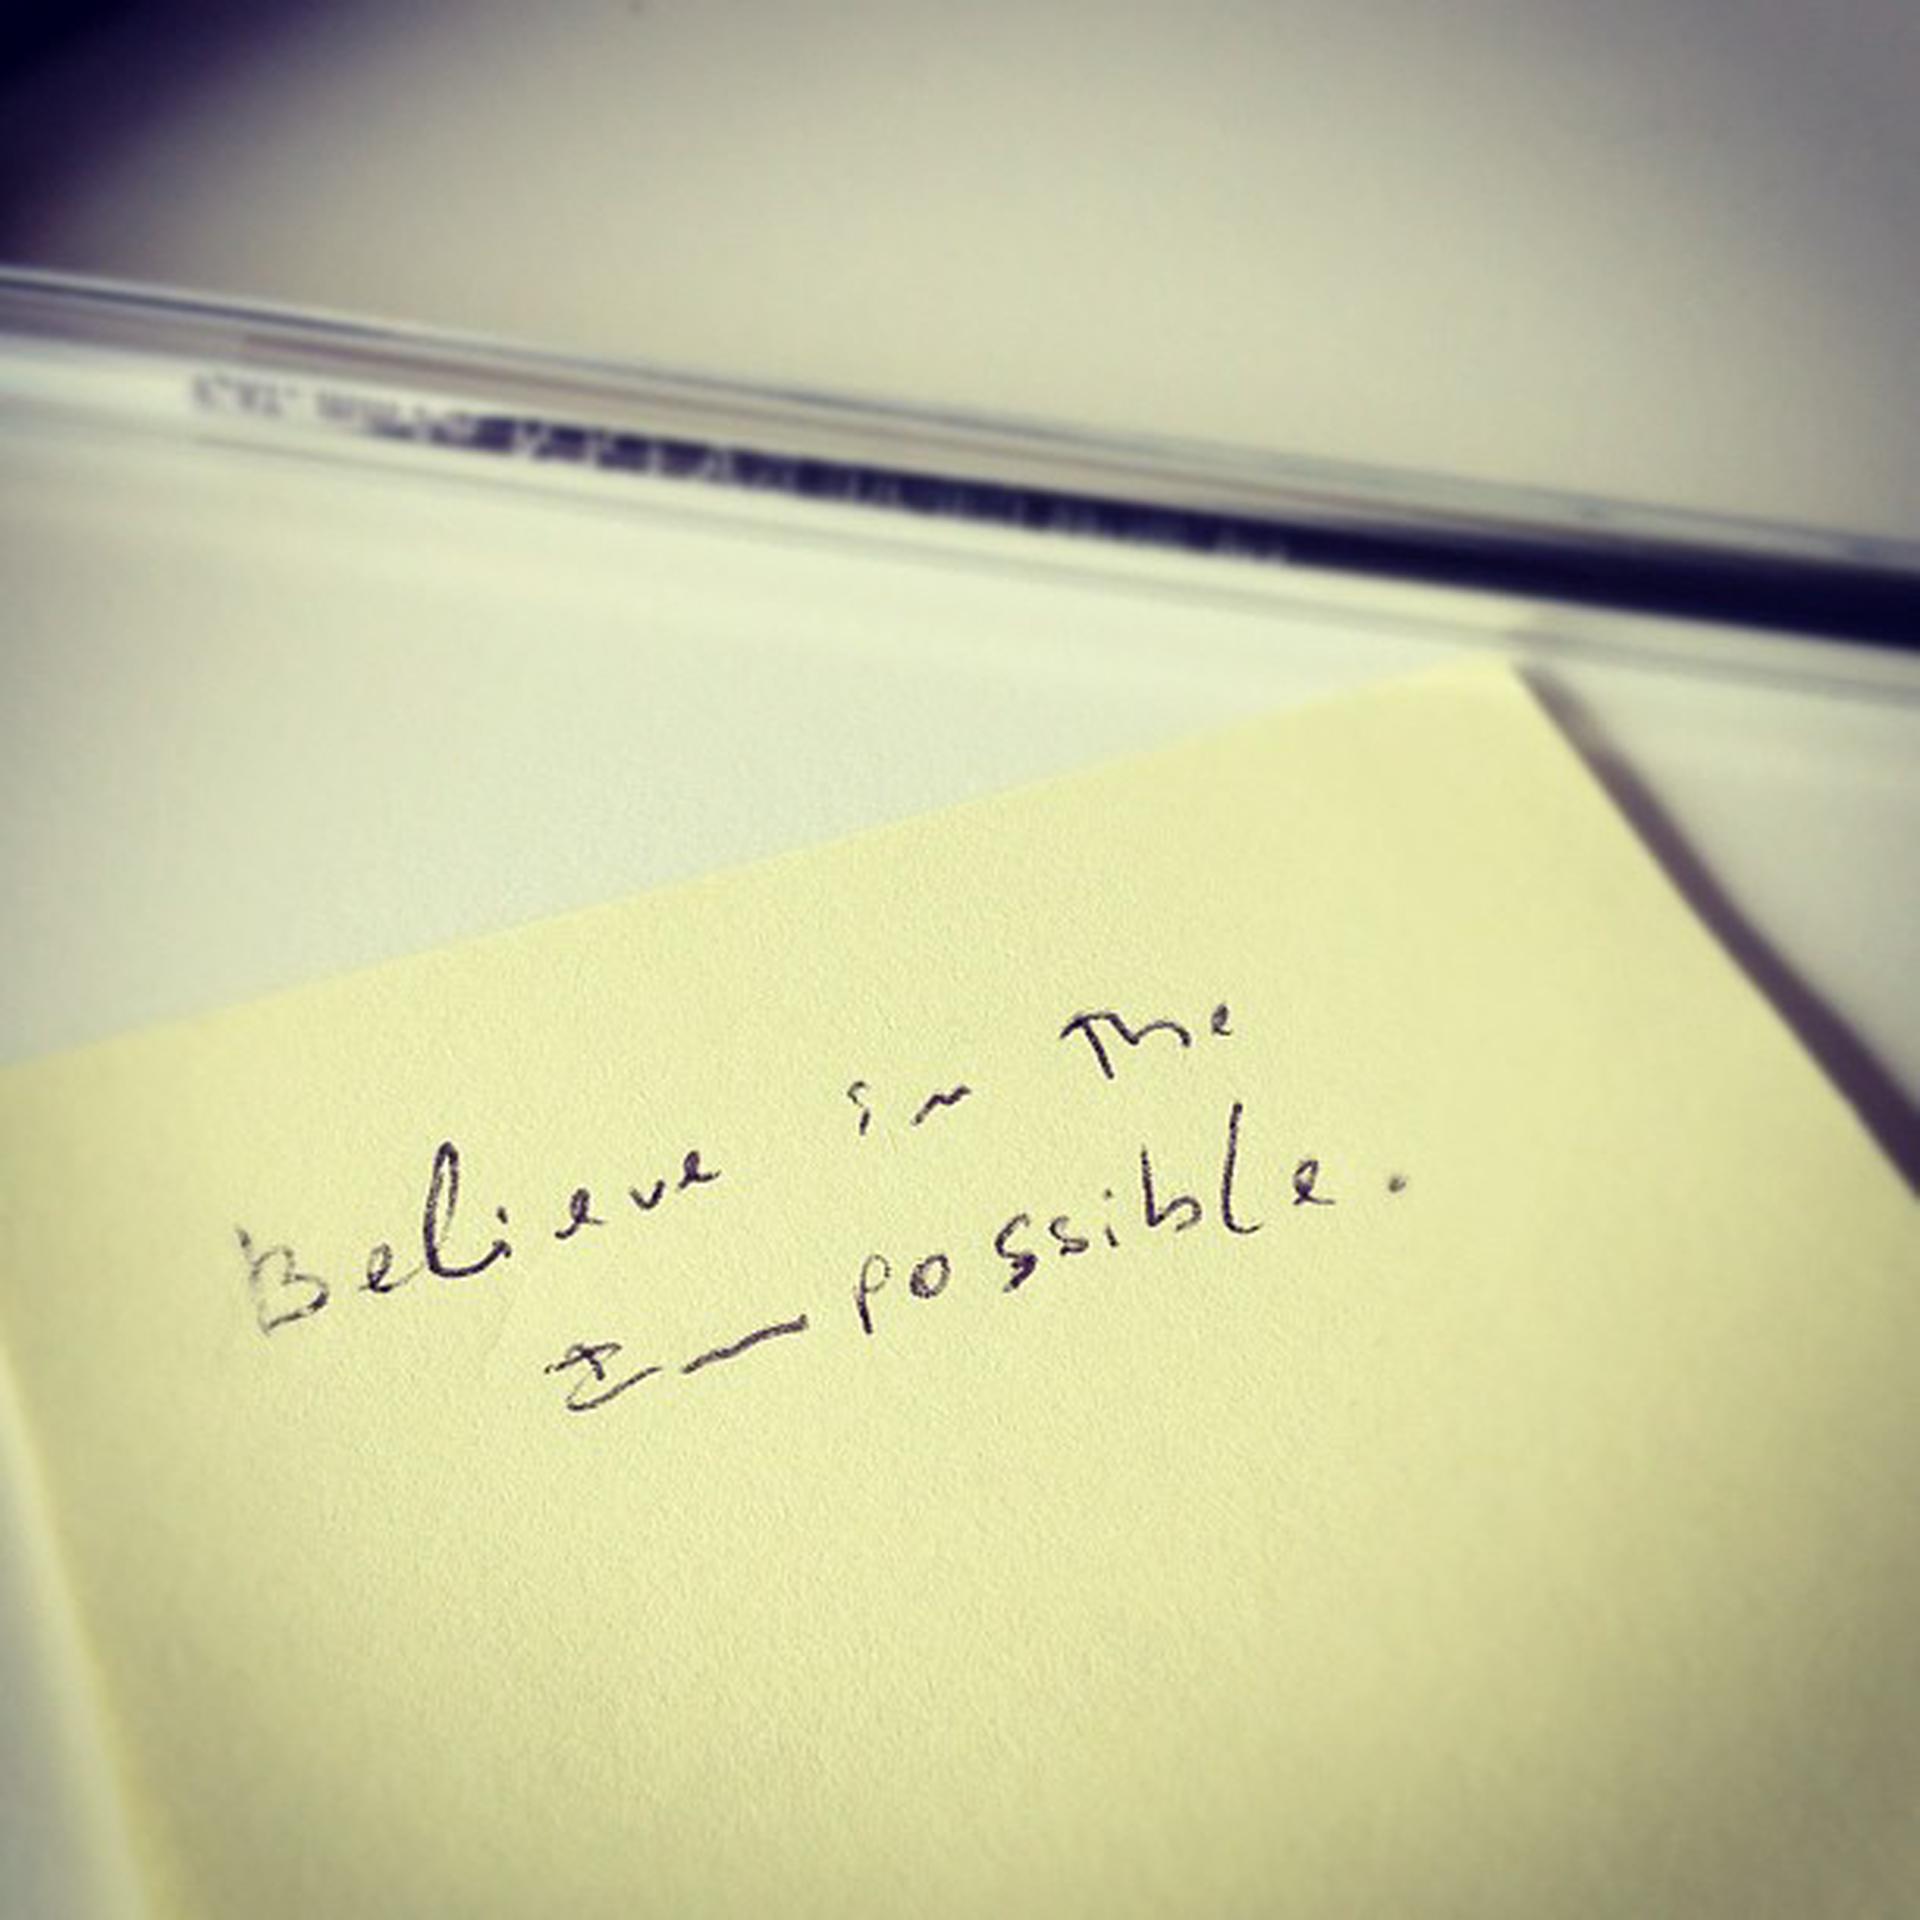 Believe in The
Impossible.